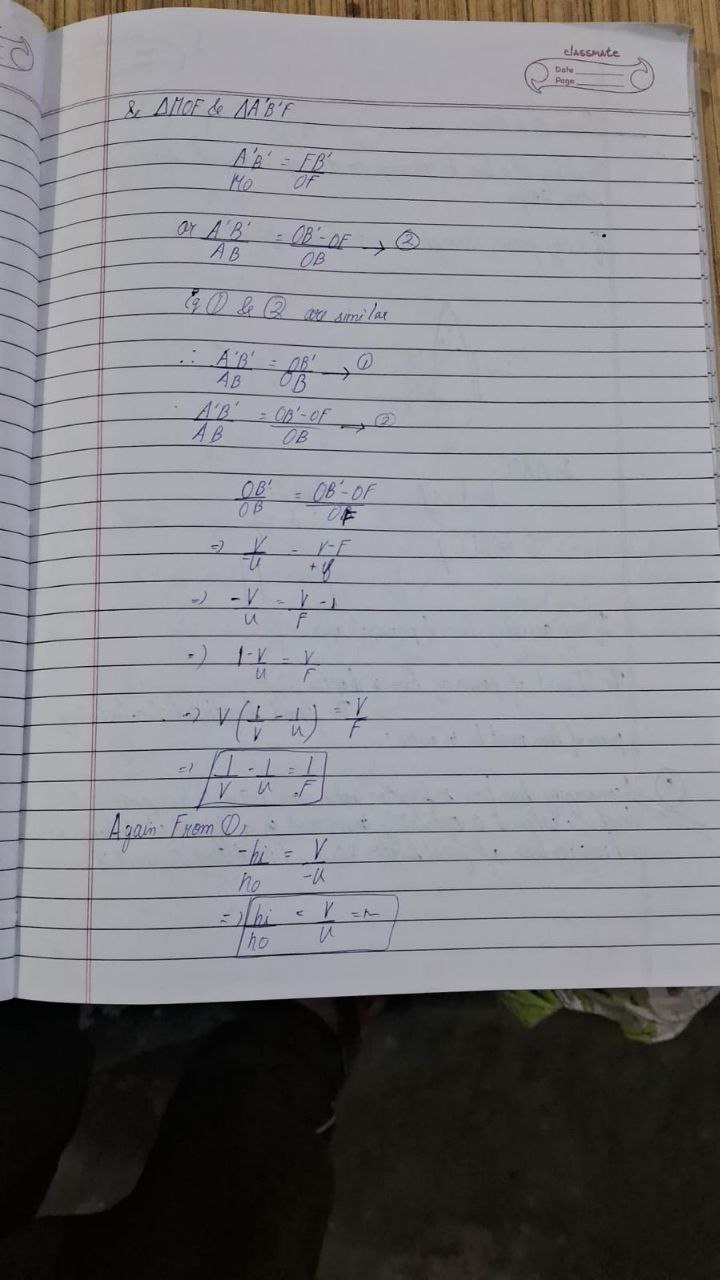 classmate
Date
Page
& ΔMOF & ΔA'B'F
A'B'/MO = FB'/OF
or A'B'/AB = OB'-OF/OB → ②
Eq ① & ② are similar
∴ A'B'/AB = OB'/OB → ①
A'B'/AB = OB'-OF/OB → ②
OB'/OB = OB'-OF/OF
=) V/-u = V-F/+f
=) -V/u = V/F -1
=) 1-V/u = V/F
=) V(1/V - 1/u) = V/F
=) 1/V - 1/u = 1/F
Again From ①,
-hi/ho = V/-u
=) hi/ho = V/u = m